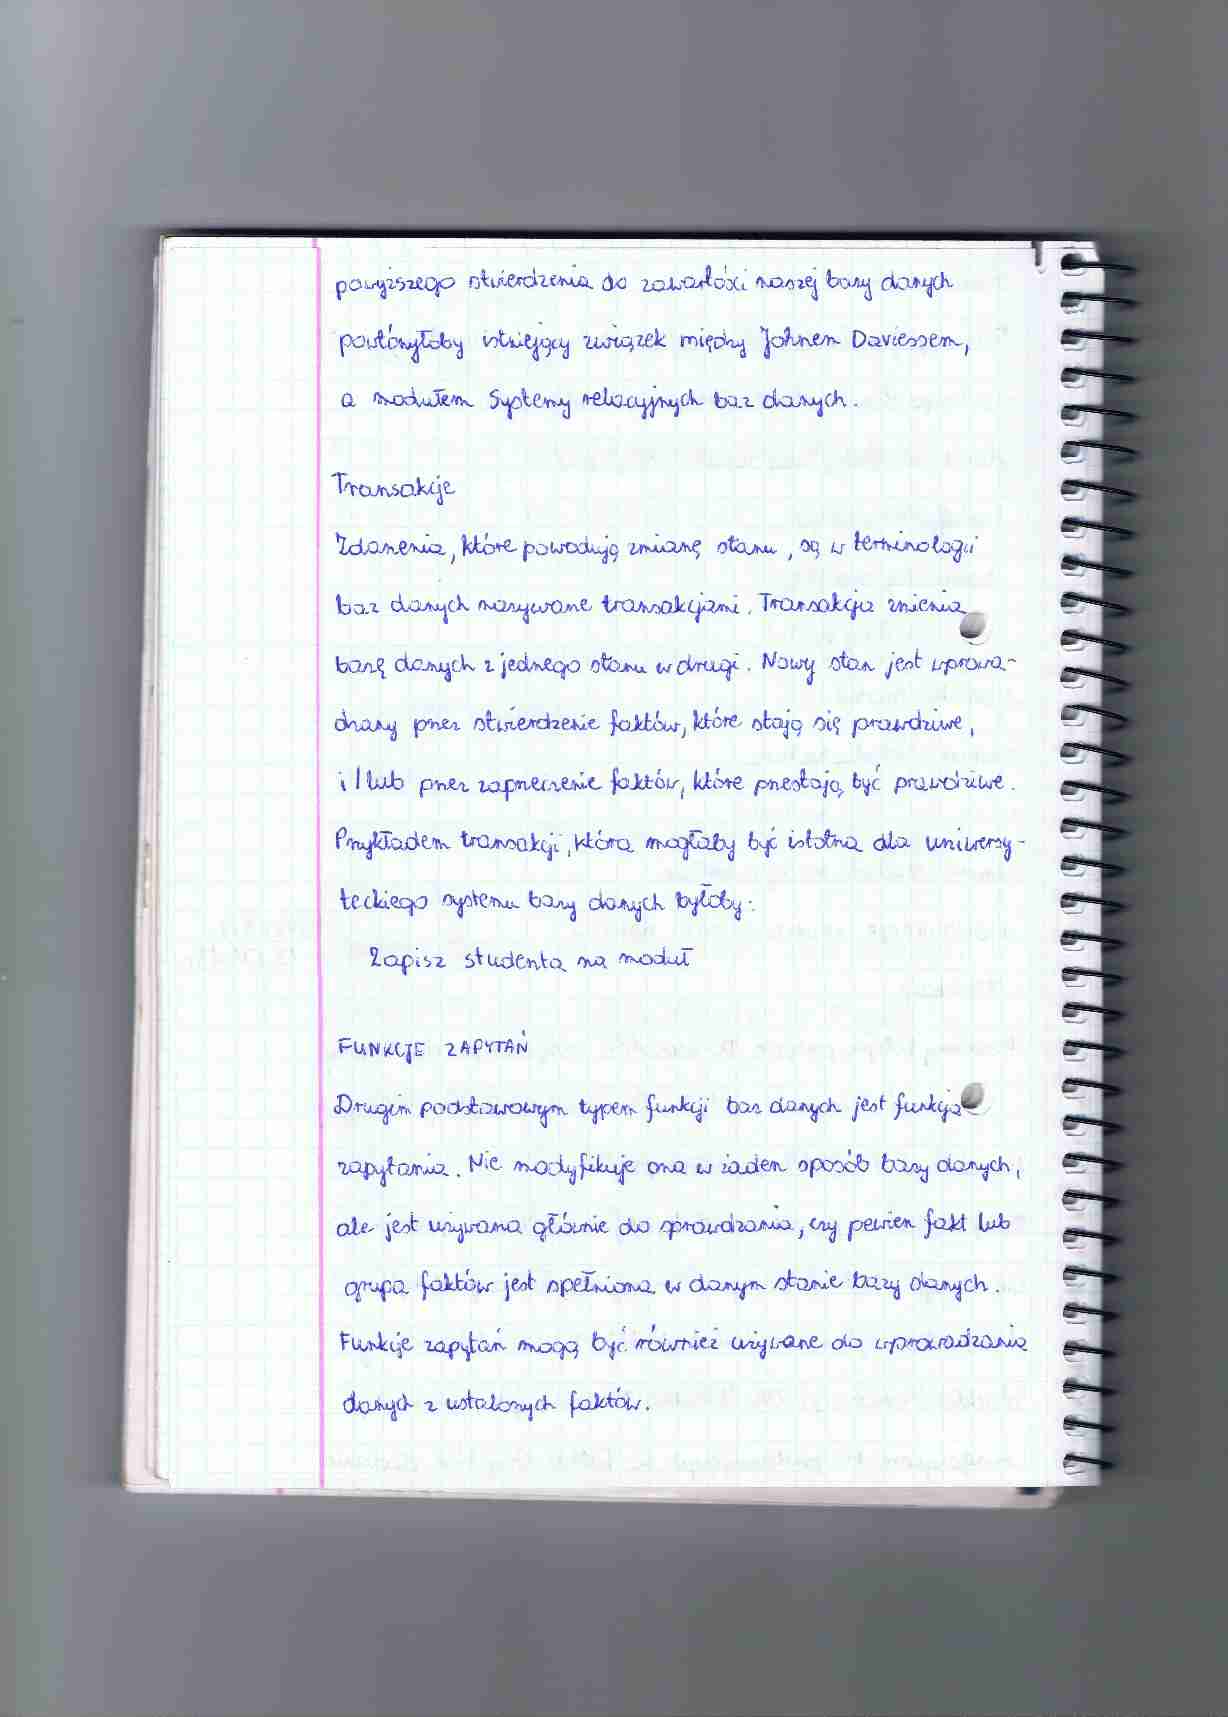 powyższego stwierdzenia do zawartości naszej bazy danych
powtórzyłoby istniejący związek między Johnem Daviessem,
a modułem Systemy relacyjnych baz danych.
Transakcje
Zdarzenia, które powodują zmianę stanu, są w terminologii
baz danych nazywane transakcjami. Transakcja zmienia
bazę danych z jednego stanu w drugi. Nowy stan jest wprowa-
dzany przez stwierdzenie faktów, które stają się prawdziwe,
i/lub przez zaprzeczenie faktów, które przestają być prawdziwe.
Przykładem transakcji, która mogłaby być istotna dla uniwersy-
teckiego systemu bazy danych byłoby:
Zapisz studenta na moduł
FUNKCJE ZAPYTAŃ
Drugim podstawowym typem funkcji baz danych jest funkcja
zapytania. Nie modyfikuje ona w żaden sposób bazy danych,
ale jest używana głównie do sprawdzania, czy pewien fakt lub
grupa faktów jest spełniona w danym stanie bazy danych.
Funkcje zapytań mogą być również używane do wprowadzania
danych z ustalonych faktów.